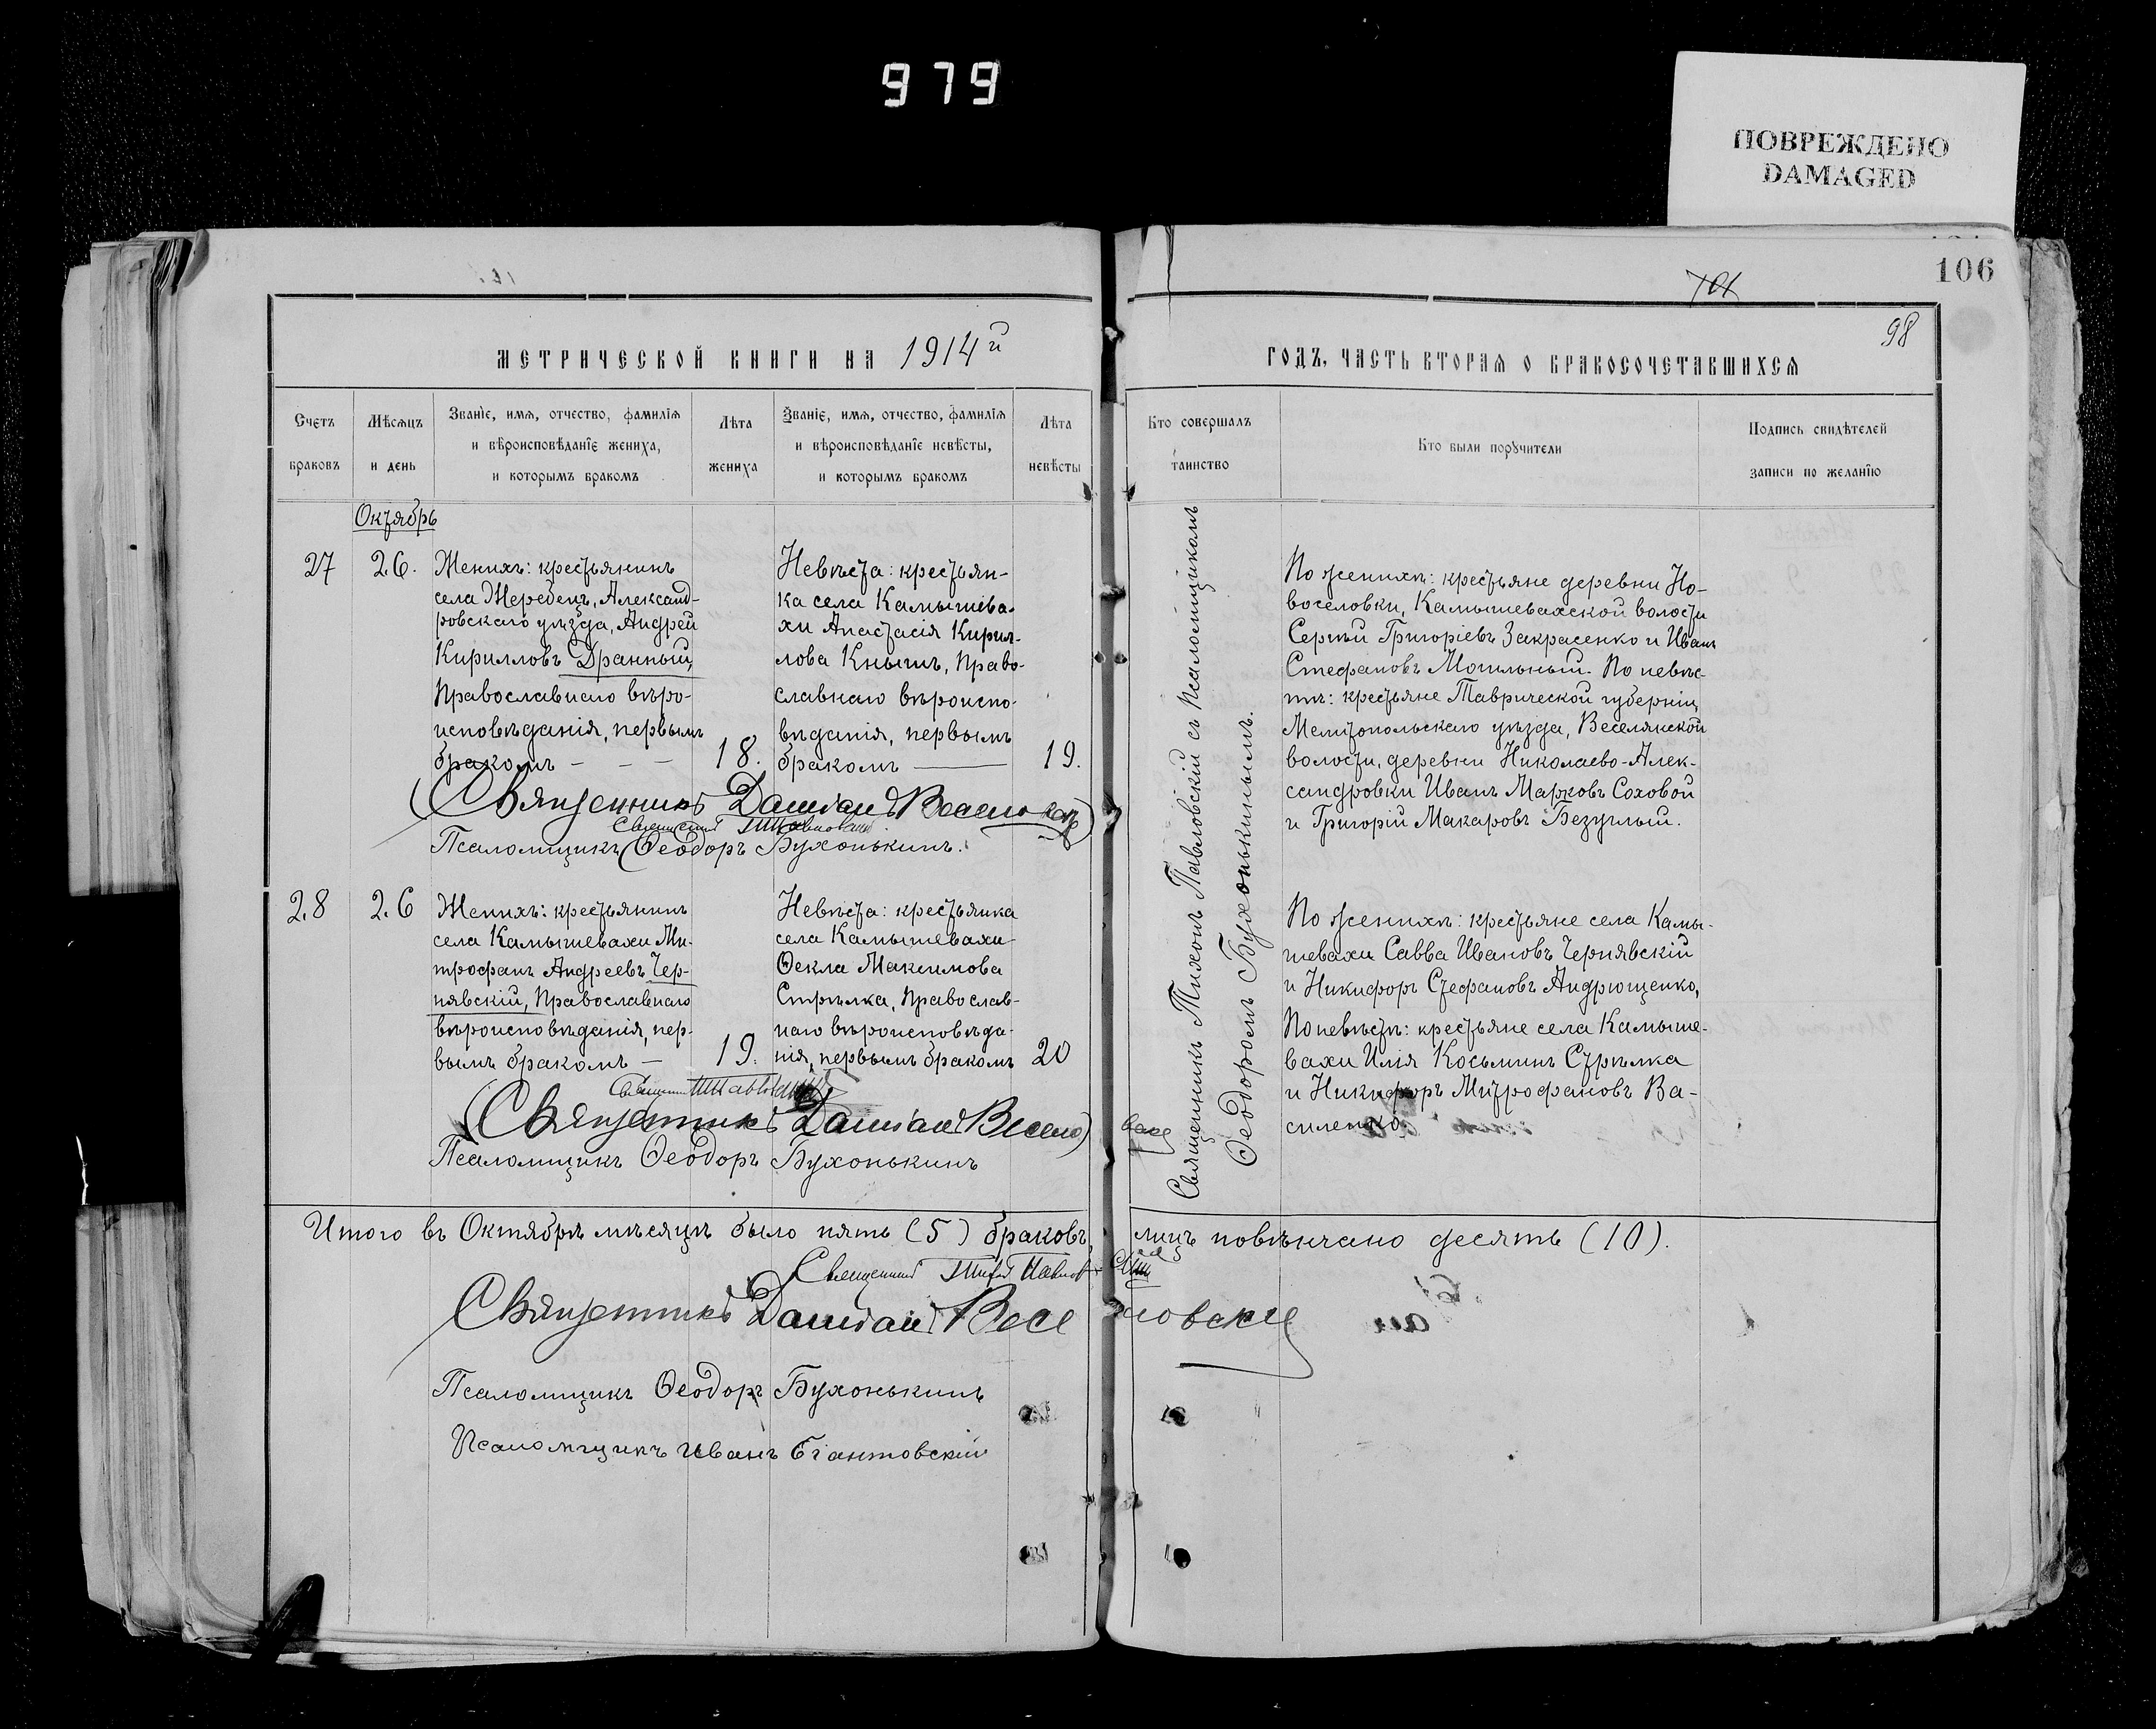 979
ПОВРЕЖДЕНО
DAMAGED
106
101
98
МЕТРИЧЕСКОЙ КНИГИ НА 1914й
ГОДЪ, ЧАСТЬ ВТОРАЯ О БРАКОСОЧЕТАВШИХСЯ
Счетъ
браковъ
Мѣсяцъ
и день
Званіе, имя, отчество, фамилія
и вѣроисповѣданіе жениха,
и которымъ бракомъ
Лѣта
жениха
Званіе, имя, отчество, фамилія
и вѣроисповѣданіе невѣсты,
и которымъ бракомъ
Лѣта
невѣсты
Кто совершалъ
таинство
Кто были поручители
Подпись свидѣтелей
записи по желанію
Октябрь
27
26.
Женихъ: крестьянинъ
села Жеребецъ, Александ-
ровскаго уѣзда, Андрей
Кирилловъ Дранный,
Православнаго вѣро-
исповѣданія, первымъ
бракомъ - - -
18.
Невѣста: крестьян-
ка села Камышева-
хи Анастасія Кирил-
лова Кнышъ, Право-
славнаго вѣроиспо-
вѣданія, первымъ
бракомъ —
19.
Священникъ Тихонъ Павловскій съ Псаломщикомъ
Ѳеодоромъ Бухонькинымъ.
По женихѣ: крестьяне деревни Но-
воселовки, Камышевахской волости
Сергѣй Григоріевъ Закрасенко и Иванъ
Стефановъ Могильный. По невѣс-
тѣ: крестьяне Таврической губерніи,
Мелитопольскаго уѣзда, Веселянской
волости, деревни Николаево-Алек-
сандровки Иванъ Марковъ Соховой
и Григорій Макаровъ Безуглый.
Священникъ Даміанъ
Псаломщикъ Ѳеодоръ Бухонькинъ.
28
26
Женихъ: крестьянинъ
села Камышевахи Ми-
трофанъ Андреевъ Чер-
нявскій, Православнаго
вѣроисповѣданія, пер-
вымъ бракомъ —
19.
Невѣста: крестьянка
села Камышевахи
Ѳекла Максимова
Стрѣлка, Православ-
наго вѣроисповѣда-
нія, первымъ бракомъ
20
По женихѣ: крестьяне села Камы-
шевахи Савва Ивановъ Чернявскій
и Никифоръ Стефановъ Андрющенко,
По невѣстѣ: крестьяне села Камыше-
вахи Илія Косьминъ Стрѣлка
и Никифоръ Митрофановъ Ва-
силенко.
Священникъ Даміанъ
Псаломщикъ Ѳеодоръ Бухонькинъ
Итого въ Октябрѣ мѣсяцѣ было пять (5) браковъ, лицъ повѣнчано десять (10).
Священникъ Тихонъ
Священникъ Даміанъ Веселовскій
Псаломщикъ Ѳеодоръ Бухонькинъ
Псаломщикъ Иванъ